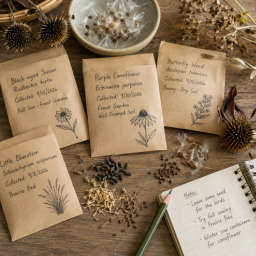 Black-eyed Susan
Rudbeckia hirta
Collected 9/18/2024
Full Sun - Front Garden
Purple Coneflower
Echinacea purpurea
Collected 9/10/2024
Front Garden
Well-Drained Soil
Butterfly Weed
Asclepias tuberosa
Collected 9/22/2024
Sunny - Dry Soil
Little Bluestem
Schizachyrium scoparium
Collected
Prairie Bed
Notes:
- Leave some seed
for the birds
- Try fall sowing
in Prairie Bed
- Winter sow containers
for coneflower